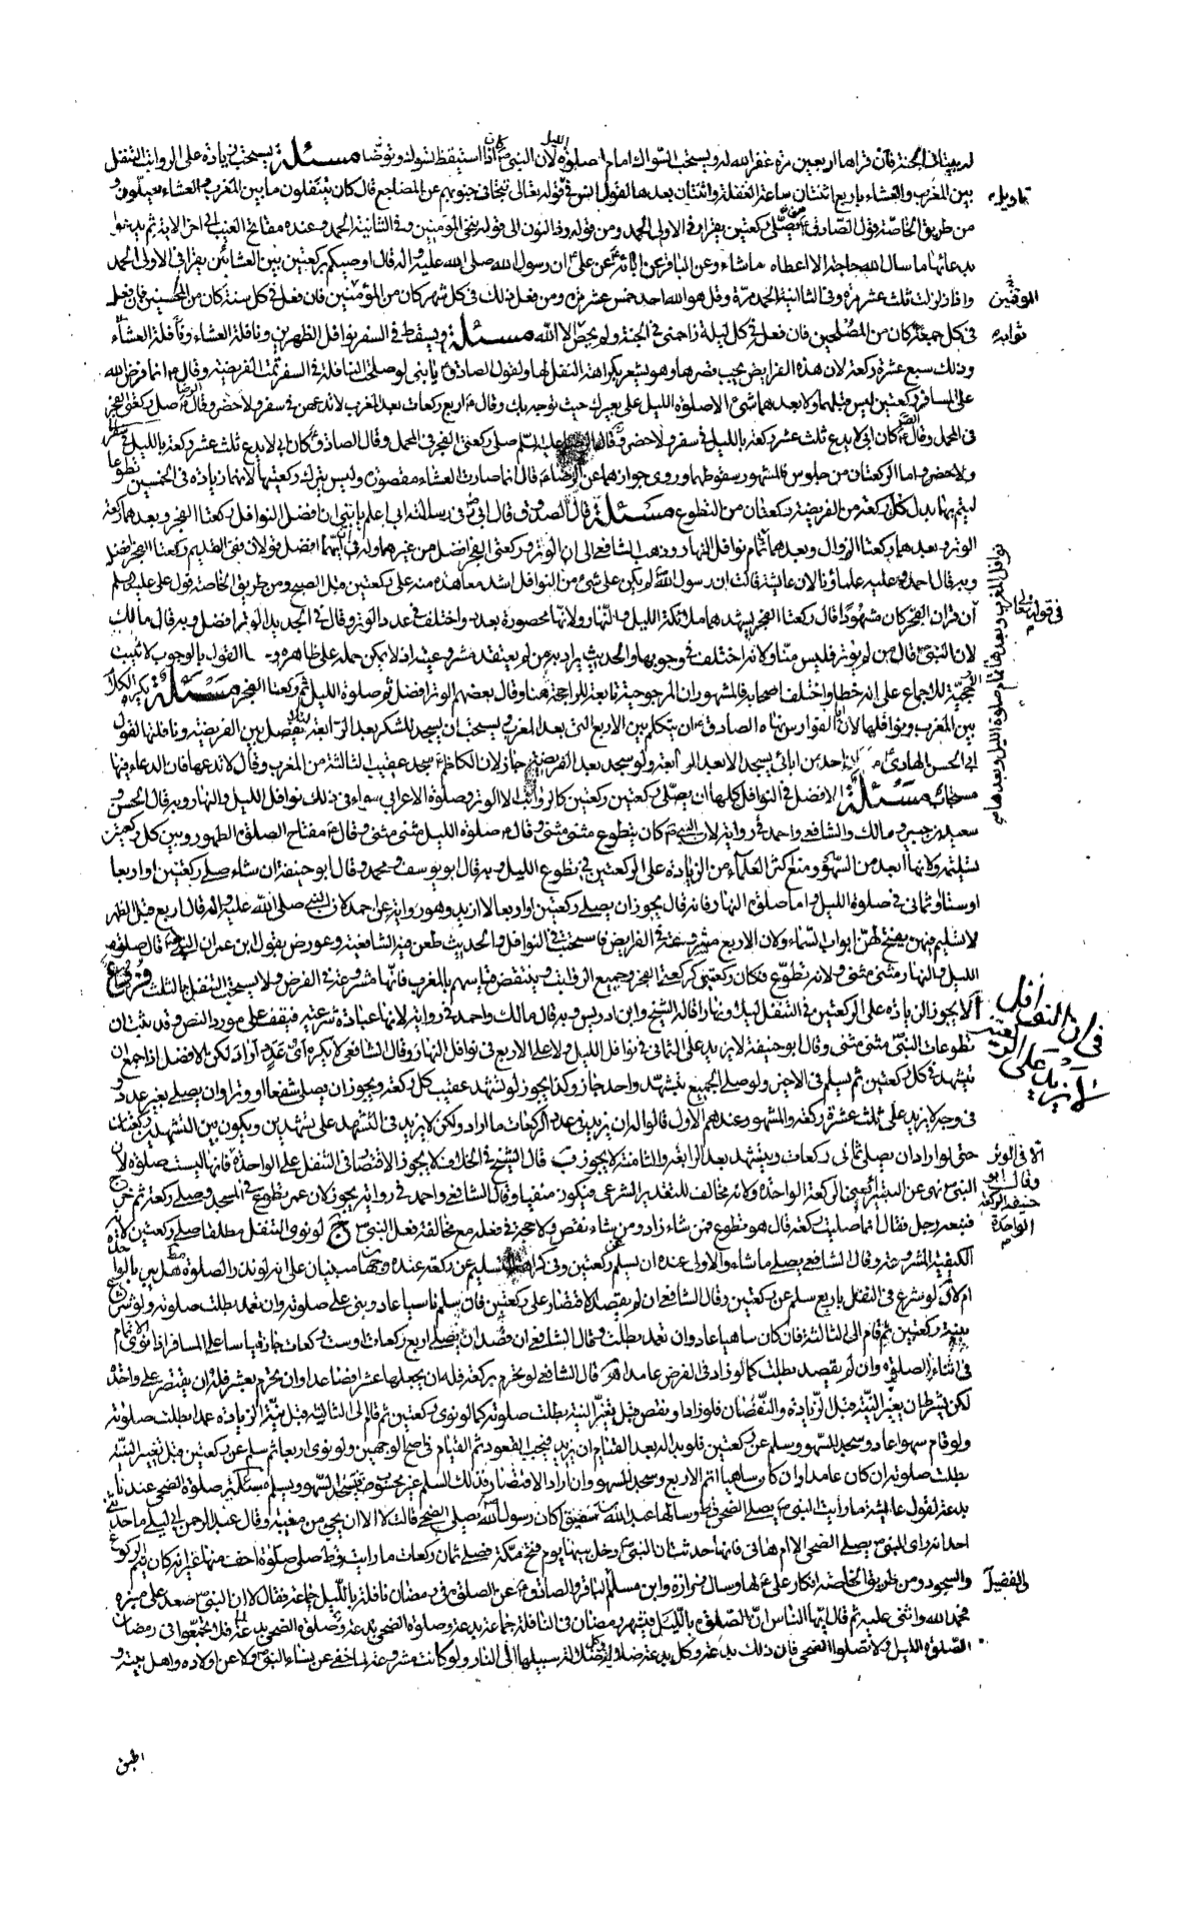 له بيتا في الجنة فان قراها اربعين مرة غفر الله له ويستحب السواك امام صلوة الليل لأن النبي ص كان اذا استيقظ تسوك وتوضا مسئلة يستحب زيادة على الرواتب التنفل
بين المغرب والعشاء باربع اثنتان ساعة الغفلة واثنتان بعدها لقول انس في قوله تعالى تتجافى جنوبهم عن المضاجع قال كانوا يتنفلون ما بين المغرب والعشاء يصلون و
من طريق الخاصة قول الصادق ع من صلى ركعتين يقرا في الاولى الحمد ومن قوله وذا النون الى قوله ننجي المؤمنين وفي الثانية الحمد وعنده مفاتح الغيب الى اخر الاية ثم يدعو
بدعائها ما سال الله حاجة الا اعطاه ما شاء وعن الباقر عن ابائه عن علي ع ان رسول الله صلى الله عليه واله قال اوصيكم بركعتين بين العشائين يقرا في الاولى الحمد
واذا زلزلت ثلث عشر مرة وفي الثانية الحمد مرة وقل هو الله احد خمس عشر مرة ومن فعل ذلك في كل شهر كان من المؤمنين فان فعل في كل سنة كان من المحسنين فان فعل
في كل جمعة كان من المصلحين فان فعل في كل ليلة زاحمني في الجنة ولم يحص الا الله مسئلة ويسقط في السفر نوافل الظهرين ونافلة العشاء
وذلك سبع عشرة ركعة لان هذه الفرايض يجب قصرها وهو يشعر بكراهة التنفل لها ولقول الصادق ع يا بني لو صلحت النافلة في السفر تمت الفريضة وقال ع انما فرض الله
على المسافر ركعتين ليس قبلهما ولا بعدهما شئ الا صلوة الليل على بعيرك حيث توجه بك وقال ع اربع ركعات بعد المغرب لا تدعهن في سفر ولا حضر وقال الرضا ع صل ركعتي الفجر
في المحمل وقال ع كان ابي لا يدع ثلث عشر ركعة بالليل في سفر ولا حضر
ولا حضر واما الركعتان من جلوس فالمشهور سقوطهما وروي جوازهما عن الرضا ع قال انما صارت العشاء مقصورة وليس يترك ركعتيها لانها زيادة في الخمسين تطوعا
ليتم بها بدل كل ركعة من الفريضة ركعتان من التطوع مسئلة قال الصدوق قال ابي في رسالته الي اعلم يا بني ان افضل النوافل ركعتا الفجر وبعدهما ركعة
الوتر وبعدها ركعتا الزوال وبعدهما تمام نوافل النهار وذهب الشافعي الى ان الوتر وركعتي الفجر افضل من غيرهما وله في ايهما افضل قولان ففي القديم ركعتا الفجر افضل
وبه قال احمد وعليه علماؤنا لان عايشة قالت ان رسول الله ص لم يكن على شئ من النوافل اشد معاهدة منه على ركعتين قبل الصبح ومن طريق الخاصة قول علي عليه السلم
ان قران الفجر كان مشهودا قال ركعتا الفجر يشهدهما ملئكة الليل والنهار ولانها محصورة بعدد واختلف في عدد الوتر وقال في الجديد الوتر افضل وبه قال مالك
لان النبي ص قال من لم يوتر فليس منا ولانه اختلف في وجوبها والحديث يراد به من لم يعتقد مشروعيته اذ لا يمكن حمله على ظاهره والقول بالوجوب لا يثبت
للاجماع على انه خطا واختلف اصحابه فالمشهور ان المرجوحية تابعة للراجحة هنا وقال بعضهم الوتر افضل ثم صلوة الليل ثم ركعتا الفجر مسئلة يكره الكلام
بين المغرب ونوافلها لان ابا الفوارس نهاه الصادق ع ان يتكلم بين الاربع التي بعد المغرب ويستحب ان يسجد للشكر بعد الرابعة ليفصل بين الفريضة ونافلتها لقول
ابي الحسن الهادي ع احد من ابائي يسجد الا بعد الرابعة ولو سجد بعد الفريضة جاز لان الكاظم ع سجد عقيب الثالثة من المغرب وقال لا تدعها فان الدعاء فيها
مستجاب مسئلة الافضل في النوافل كلها ان يصلى ركعتين ركعتين كالرواتب الا الوتر وصلوة الاعرابي سواء في ذلك نوافل الليل والنهار وبه قال الحسن و
سعيد بن جبير ومالك والشافعي واحمد في رواية لان النبي ص كان يتطوع مثنى مثنى وقال ع صلوة الليل مثنى مثنى وقال ع مفتاح الصلوة الطهور وبين كل ركعتين
تسليمة ولانها ابعد من السهو ومنع اكثر العلماء من الزيادة على الركعتين في تطوع الليل وبه قال ابو يوسف ومحمد وقال ابو حنيفة ان شاء صلى ركعتين او اربعا
او ستا وثماني في صلوة الليل واما صلوة النهار فانه قال يجوز ان يصلي ركعتين او اربعا لا ازيد وهو رواية عن احمد لان النبي صلى الله عليه واله قال اربع قبل الظهر
لا تسليم فيهن يفتح لهن ابواب السماء وكان الاربع مشروعة في الفرايض فاستحبت في النوافل والحديث طعن فيه الشافعية وعورض بقول ابن عمر ان النبي ص قال صلوة
الليل والنهار مثنى مثنى ولانه تطوع فكان ركعتين كركعتي الفجر وجميع الرواتب وينتقض قياسهم بالمغرب فانها مشروعة في الفرض ولا يستحب التنفل بالثلث فروع
ا لا يجوز الزيادة على الركعتين في التنفل ليلا ونهارا قاله الشيخ وابن ادريس وبه قال مالك واحمد في رواية لانها عبادة شرعية فيقف على مورد النص وقد ثبت ان
تطوعات النبي ص مثنى مثنى وقال ابو حنيفة لا يزيد على الثماني في نوافل الليل ولا على الاربع في نوافل النهار وقال الشافعي لا يكره اي عدد اراد لكن الافضل اذا جمع ان
يتشهد في كل ركعتين ثم يسلم في الاخير ولو صلى الجميع بتشهد واحد جاز وكذا يجوز لو تشهد عقيب كل ركعة ويجوز ان يصلي شفعا او وترا وان يصلي بغير عدد و
في وجه لا يزيد على ثلث عشرة ركعة والمشهور عندهم الاول قالوا له ان يزيد في عدد الركعات ما اراد ولكن لا يزيد في التشهد على تشهدين ويكون بين التشهدين ركعتان
حتى لو اراد ان يصلي ثماني ركعات ويتشهد بعد الرابعة والثامنة لا يجوز ب قال الشيخ في الخلاف لا يجوز الاقتصار في التنفل على الواحدة فانها ليست صلوة لان
النبي ص نهى عن البتيراء يعني الركعة الواحدة ولانه مخالف للتقدير الشرعي فيكون منفيا وقال الشافعي واحمد في رواية يجوز لان عمر تطوع في المسجد وصلى ركعة ثم خرج
فتبعه رجل فقال انما صليت ركعة قال هو تطوع فمن شاء زاد ومن شاء نقص ولا حجة في فعله مع مخالفته فعل النبي ص ج لو نوى التنفل مطلقا صلى ركعتين لانه
الكيفية المشروعة وقال الشافعي يصلي ما شاء والاولى عنده ان يسلم عن ركعتين وفي كراهة التسليم عن ركعة عنده وجهان مبنيان على انه لو نذر الصلوة هل يبر بالواحدة
ام لا د لو شرع في التنفل باربع سلم عن ركعتين وقال الشافعي ان لم يقصد الاقتصار على ركعتين فان سلم ناسيا عاد وبنى على صلوته وان تعمد بطلت صلوته ولو شرع
بنية ركعتين ثم قام الى الثالثة فان كان ساهيا عاد وان تعمد بطلت وقال الشافعي ان قصد ان يصلي اربع ركعات او ست ركعات جاز قياسا على المسافر اذا نوى الاتمام
في اثناء الصلوة وان لم يقصد بطلت كما لو زاد في الفرض عامدا ه قال الشافعي لو تحرم بركعة فله ان يجعلها عشرا فصاعدا وان تحرم بعشر فله ان يقتصر على واحدة
لكن بشرط ان يغير النية قبل الزيادة والنقصان فلو زاد او نقص قبل تغير النية بطلت صلوته كما لو نوى ركعتين ثم قام الى الثالثة قبل نية الزيادة عمدا بطلت صلوته
ولو قام سهوا عاد وسجد للسهو وسلم عن ركعتين فلو بدا له بعد القيام ان يزيد فيجب القعود ثم القيام في اصح الوجهين ولو نوى اربعا ثم سلم عن ركعتين قبل تغير النية
بطلت صلوته ان كان عامدا وان كان ساهيا اتم الاربع وسجد للسهو وان اراد الاقتصار فذلك السلم غير محسوب فيسجد للسهو ويسلم مسئلة صلوة الضحى عندنا
بدعة لقول عايشة ما رايت النبي ص يصلي الضحى قط وسالها عبد الله بن شقيق اكان رسول الله ص يصلي الضحى قالت لا الا ان يجئ من مغيبه وقال عبد الرحمن بن ابي ليلى ما حدثني
احد انه راى النبي ص يصلي الضحى الا ام هاني فانها حدثت ان النبي ص دخل بيتها يوم فتح مكة فصلى ثمان ركعات ما رايته قط صلى صلوة اخف منها غير انه كان يتم الركوع
والسجود ومن طريق الخاصة انكار علي ع لها وسال زرارة وابن مسلم والفضيل الباقر والصادق ع عن الصلوة في رمضان نافلة بالليل جماعة فقال لا ان النبي ص صعد على منبره
فحمد الله واثنى عليه ثم قال ايها الناس ان الصلوة بالليل في شهر رمضان في النافلة جماعة بدعة وصلوة الضحى بدعة فلا تجتمعوا في رمضان
لصلوة الليل ولا تصلوا الضحى فان ذلك بدعة وكل بدعة ضلالة وكل ضلالة سبيلها الى النار ولو كانت مشروعة لم يخف عن نساء النبي ص ولا عن اولاده واهل بيته و
الموقنين
ثوابه
في قوله تعالى
نوافل المغرب وبعدها تمام صلوة الليل وبعدها
في ان النوافل لا يزيد على الركعتين
الا في الوتر
وقال ابو حنيفة
الركعة الواحدة
والفضيل